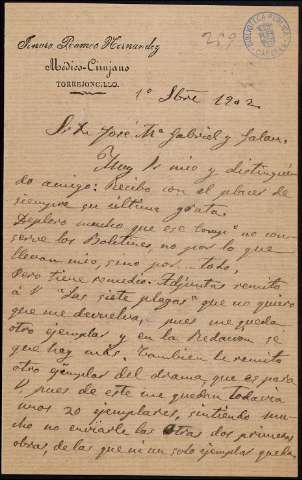 Ramos Hernandez
Médico-Cirujano
TORREJONCILLO.
1º Sbre 1902
Sr Dn José Mª Gabriel y Galan.
Muy Sr mio y distingui-
do amigo: Recibo con el placer de
siempre su última grata.
Deploro mucho que ese con-
serve los Boletines, no por lo que
llevan mio, sino por... todo.
Pero tiene remedio. Adjuntas remito
á V "Las siete plagas" que no quiero
que me devuelva, pues me queda
otro ejemplar y en la Redaccion se
que hay más. Tambien le remito
otro ejemplar del drama, que es para
V, pues de este me quedan todavia
unos 20 ejemplares, sintiendo mu-
cho no enviarle las otras dos primeras
obras, de las que ni un solo ejemplar queda